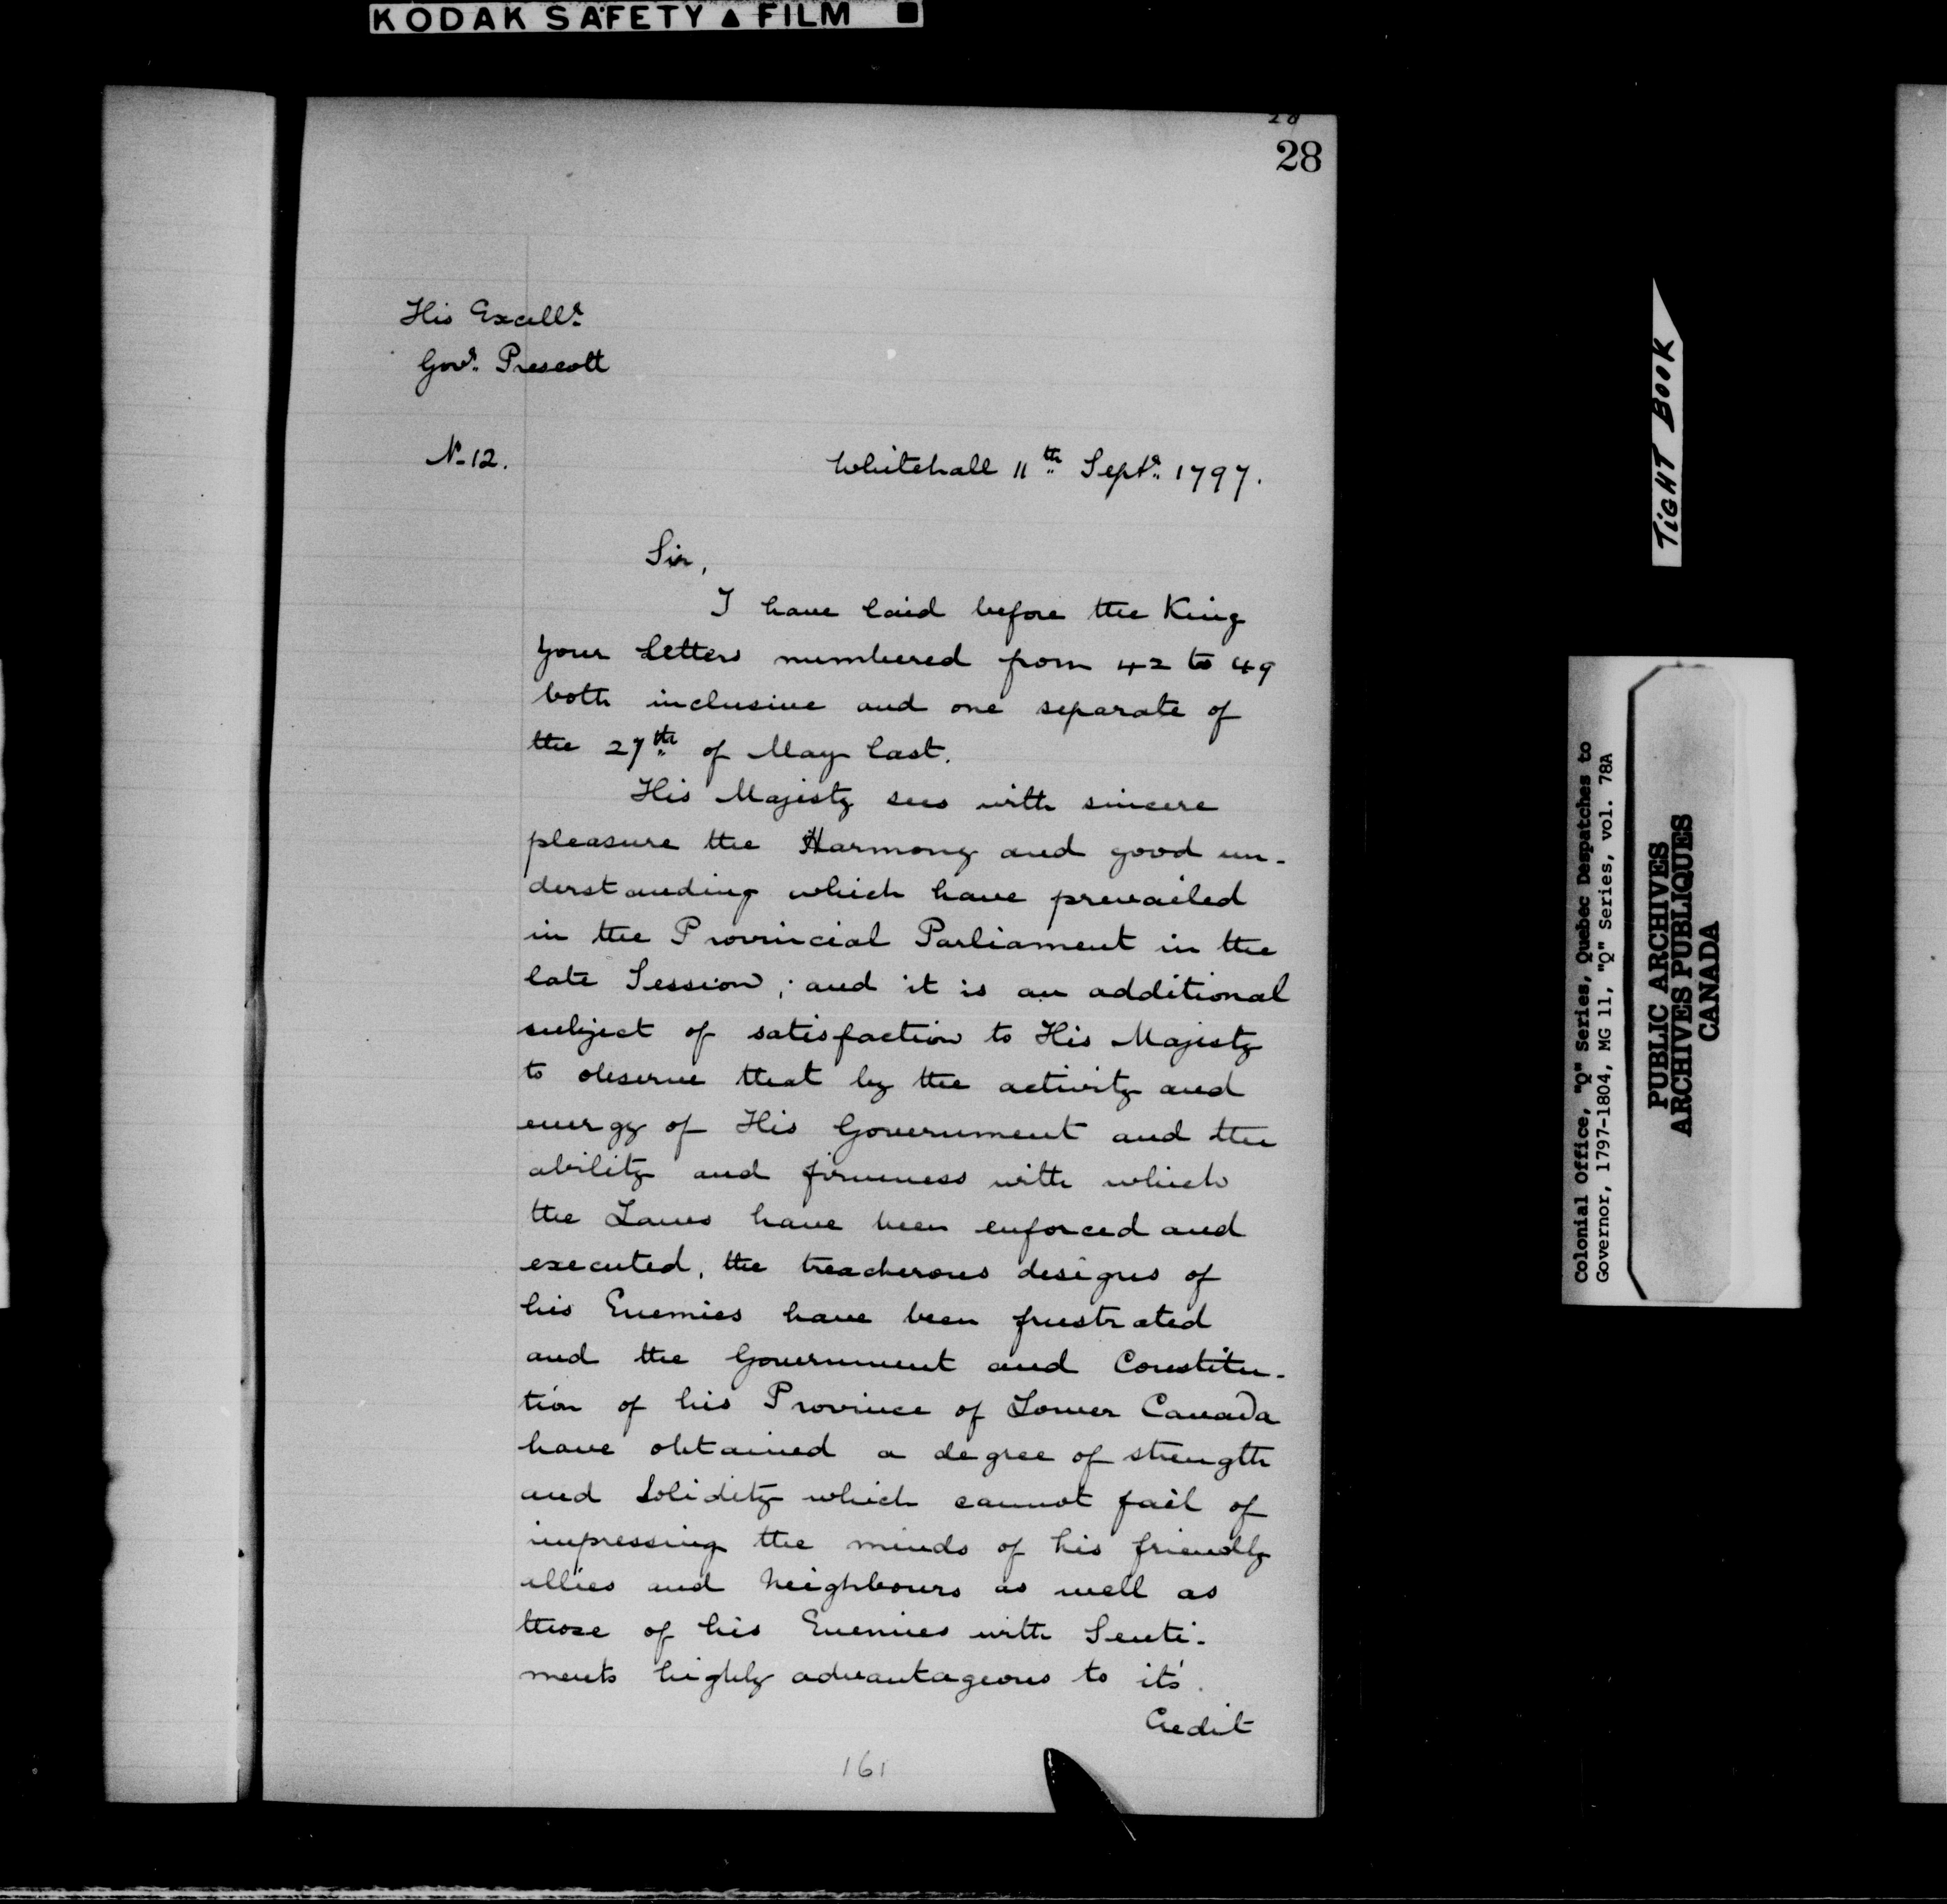 KODAK SAFETY ▲ FILM ■
28
28
His Excell.y
Gov.r Prescott
No. 12.
Whitehall 11th Sept.r 1797.
Sir,
I have laid before the King
your Letters numbered from 42 to 49
both inclusive and one separate of
the 27th of May last.
His Majesty sees with sincere
pleasure the Harmony and good un-
derstanding which have prevailed
in the Provincial Parliament in the
late Session; and it is an additional
subject of satisfaction to His Majesty
to observe that by the activity and
energy of His Government and the
ability and firmness with which
the Laws have been enforced and
executed, the treacherous designs of
his Enemies have been frustrated
and the Government and Constitu-
tion of his Province of Lower Canada
have obtained a degree of strength
and Solidity which cannot fail of
impressing the minds of his friendly
allies and Neighbours as well as
those of his Enemies with Senti-
ments highly advantageous to it's
Credit
161
TIGHT BOOK
Colonial Office, "Q" Series, Quebec Despatches to
Governor, 1797-1804, MG 11, "Q" Series, vol. 78A
PUBLIC ARCHIVES
ARCHIVES PUBLIQUES
CANADA